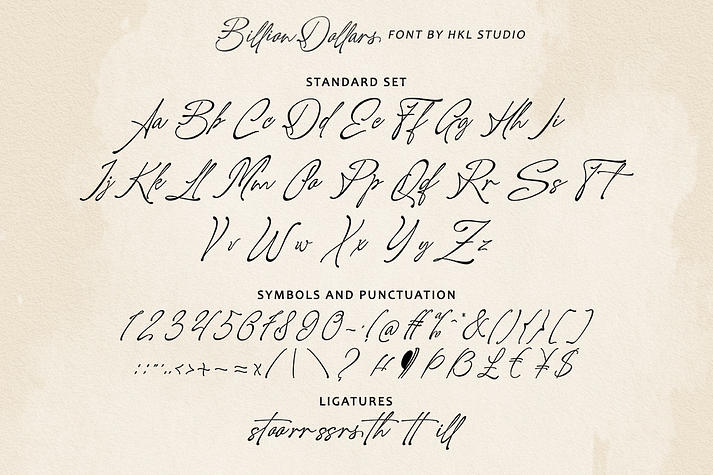 Billion Dollars FONT BY HKL STUDIO
STANDARD SET
Aa Bb Cc Dd Ee Ff Gg Hh Ii
Jj Kk Ll Mm Oo Pp Qq Rr Ss Tt
Vv Ww Xx Yy Zz
SYMBOLS AND PUNCTUATION
1234567890-·!@#%^*&(){}[]
:;"'.,<>+~=×/|\?«¶Þß£€¥$
LIGATURES
st oo rr ss rs th tt ill